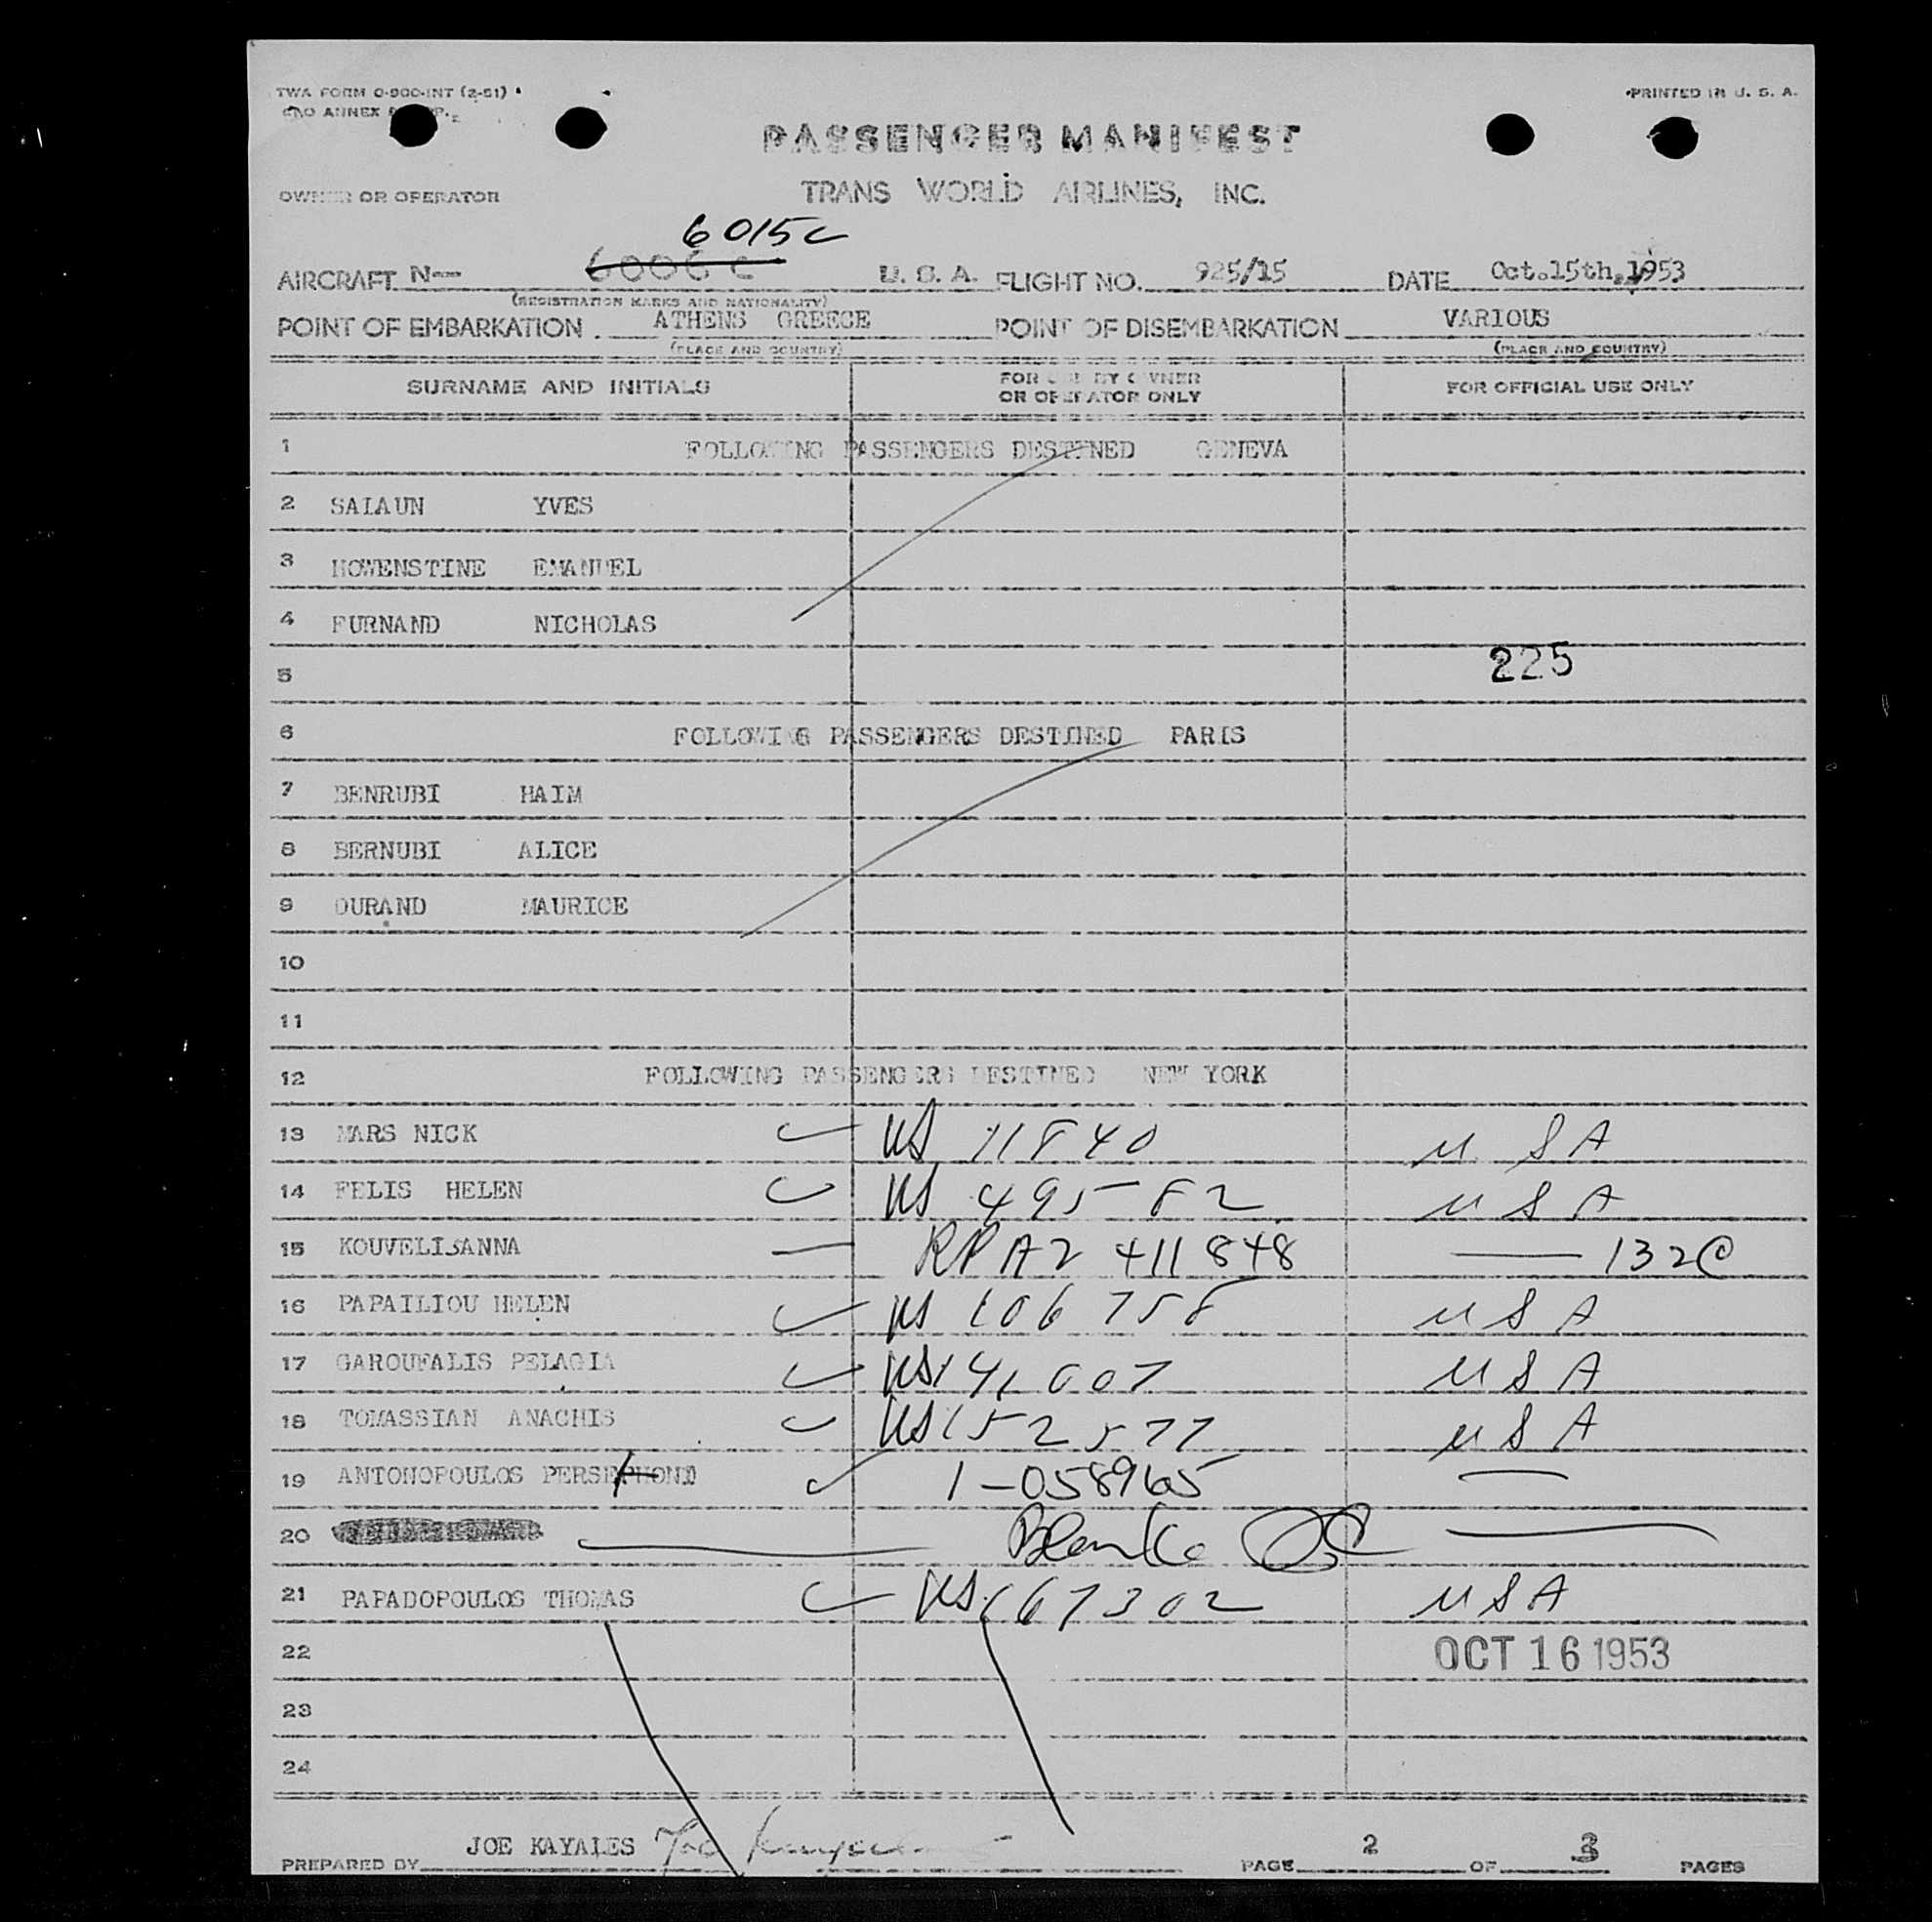 TWA FORM O-900-INT (2-51)
PRINTED IN U. S. A.
ANNEX
PASSENGER MANIFEST
OWNER OR OPERATOR TRANS WORLD AIRLINES, INC.
6015C
AIRCRAFT N-- 6006 C U. S. A. FLIGHT NO. 925/15 DATE Oct.15th,1953
(REGISTRATION MARKS AND NATIONALITY)
POINT OF EMBARKATION ATHENS GREECE POINT OF DISEMBARKATION VARIOUS
(PLACE AND COUNTRY) (PLACE AND COUNTRY)
SURNAME AND INITIALS FOR USE BY OWNER OR OPERATOR ONLY FOR OFFICIAL USE ONLY
1 FOLLOWING PASSENGERS DESTINED GENEVA
2 SALAUN YVES
3 HOWENSTINE EMANUEL
4 FURNAND NICHOLAS
5 225
6 FOLLOWING PASSENGERS DESTINED PARIS
7 BENRUBI HAIM
8 BERNUBI ALICE
9 OURAND MAURICE
10
11
12 FOLLOWING PASSENGERS DESTINED NEW YORK
13 MARS NICK US 11840 USA
14 FELIS HELEN US 495782 USA
15 KOUVELISANNA — RPA2 411848 — 132C
16 PAPAILIOU HELEN US 106758 USA
17 GAROUFALIS PELAGIA US 141007 USA
18 TOMASSIAN ANACHIS US 152577 USA
19 ANTONOPOULOS PERSEPHONI 1-058965 —
20
21 PAPADOPOULOS THOMAS US 167302 USA
22 OCT 16 1953
23
24
PREPARED BY JOE KAYALES Joe Kayales PAGE 2 OF 3 PAGES